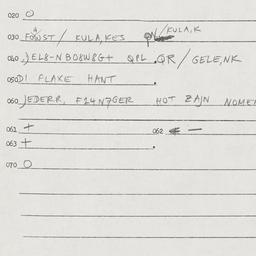 020 O
030 FOWST / KULA,KES / KULA,K
040 .)EL8-NBO8W8G+ QPL .QR / GELE,NK
050 DI FLAXE HANT .
060 JEDERR, F14N7GER HOT ZAJN NOMEN
061 + 062 —
063 + .
070 O